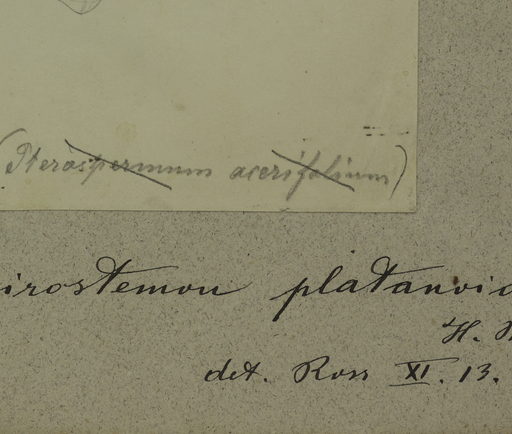 (Pterospermum acerifolium)
irostemon platanoid
H.
det. Ross XI. 13.